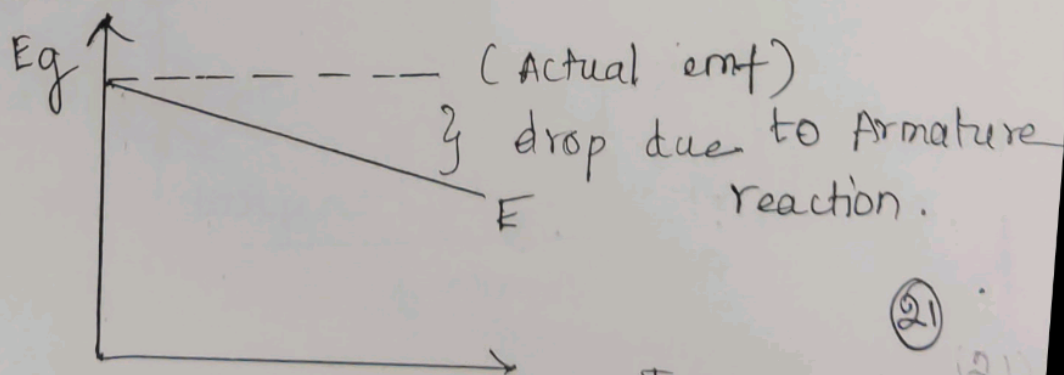 Eg
(Actual emf)
} drop due to Armature
reaction.
E
21